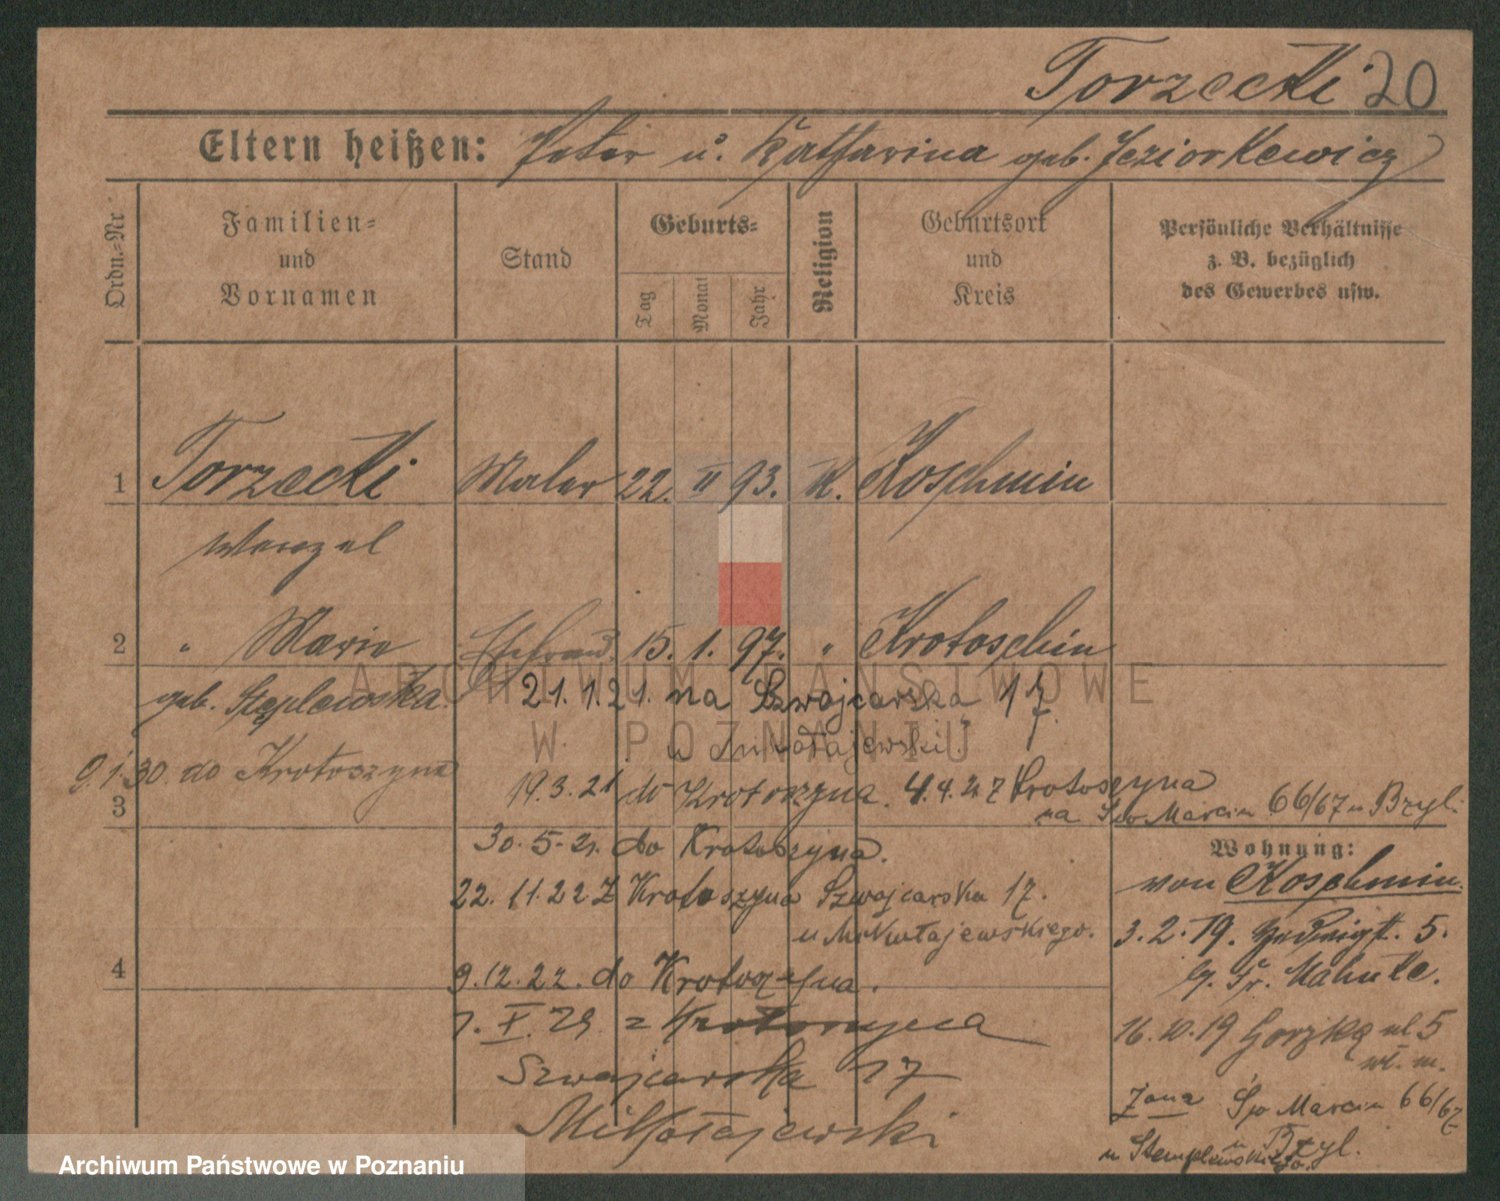 Torzecki 20
Eltern heißen: Peter u. Katharina geb. Jeziorkewicz
Ordn.=Nr
Familien=
und
Vornamen
Stand
Geburts=
Tag
Monat
Jahr
Religion
Geburtsort
und
Kreis
Persönliche Verhältnisse
z. B. bezüglich
des Gewerbes usw.
1 Torzecki Maler 22. II 93. K. Koschmin
Wenzel
2 " Marie Ehefrau 15. 1. 97. " Krotoschin
geb. Stęplewska. 21. 1. 21. na Szwajcarska 17
u Mikołajewski.
9.1.30. do Krotoszyna
3
19.3.21 do Krotoszyna. 4.4.27 Krotoszyna
na Św. Marcin 66/67 u Bzyl.
30. 5. 21. do Krotoszyna.
22. 11. 22 Z Krotoszyna Szwajcarska 17.
u Mikołajewskiego.
4
9.12.22. do Krotoszyna.
7. X. 29. z Krotoszyna
Szwajcarska 17
Mikołajewski
Wohnung:
von Koschmin.
3. 2. 19. 5.
16. 10. 19 Gorzka ul 5
wł. m.
Żona Św Marcin 66/67
u Bzyl.
u Stemplewskiego.
ARCHIWUM PAŃSTWOWE
W POZNANIU
Archiwum Państwowe w Poznaniu